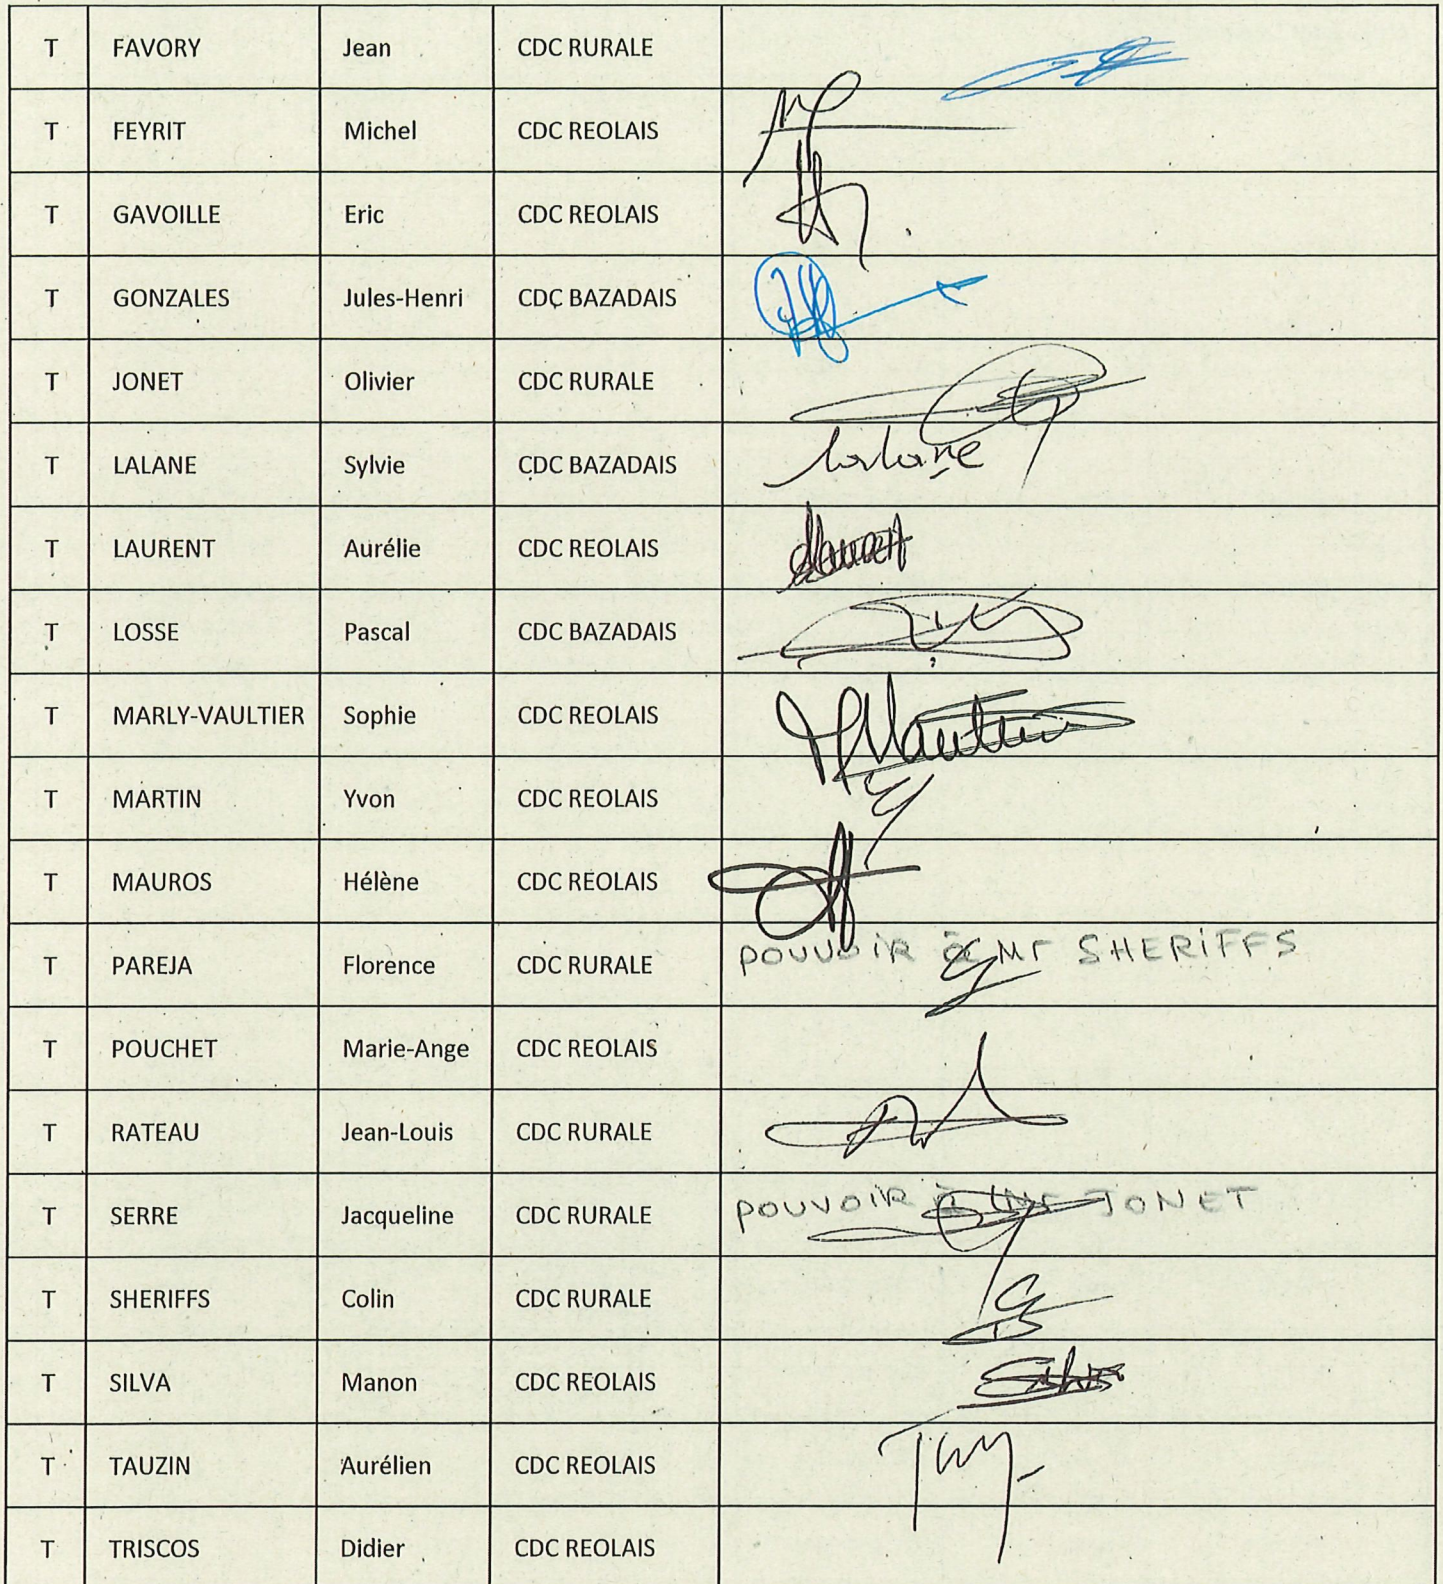 T FAVORY Jean CDC RURALE
T FEYRIT Michel CDC REOLAIS
T GAVOILLE Eric CDC REOLAIS
T GONZALES Jules-Henri CDC BAZADAIS
T JONET Olivier CDC RURALE
T LALANE Sylvie CDC BAZADAIS Lalane
T LAURENT Aurélie CDC REOLAIS
T LOSSE Pascal CDC BAZADAIS
T MARLY-VAULTIER Sophie CDC REOLAIS
T MARTIN Yvon CDC REOLAIS
T MAUROS Hélène CDC REOLAIS
T PAREJA Florence CDC RURALE POUVOIR à Mr SHERIFFS
T POUCHET Marie-Ange CDC REOLAIS
T RATEAU Jean-Louis CDC RURALE
T SERRE Jacqueline CDC RURALE POUVOIR à Mr JONET
T SHERIFFS Colin CDC RURALE
T SILVA Manon CDC REOLAIS
T TAUZIN Aurélien CDC REOLAIS
T TRISCOS Didier CDC REOLAIS